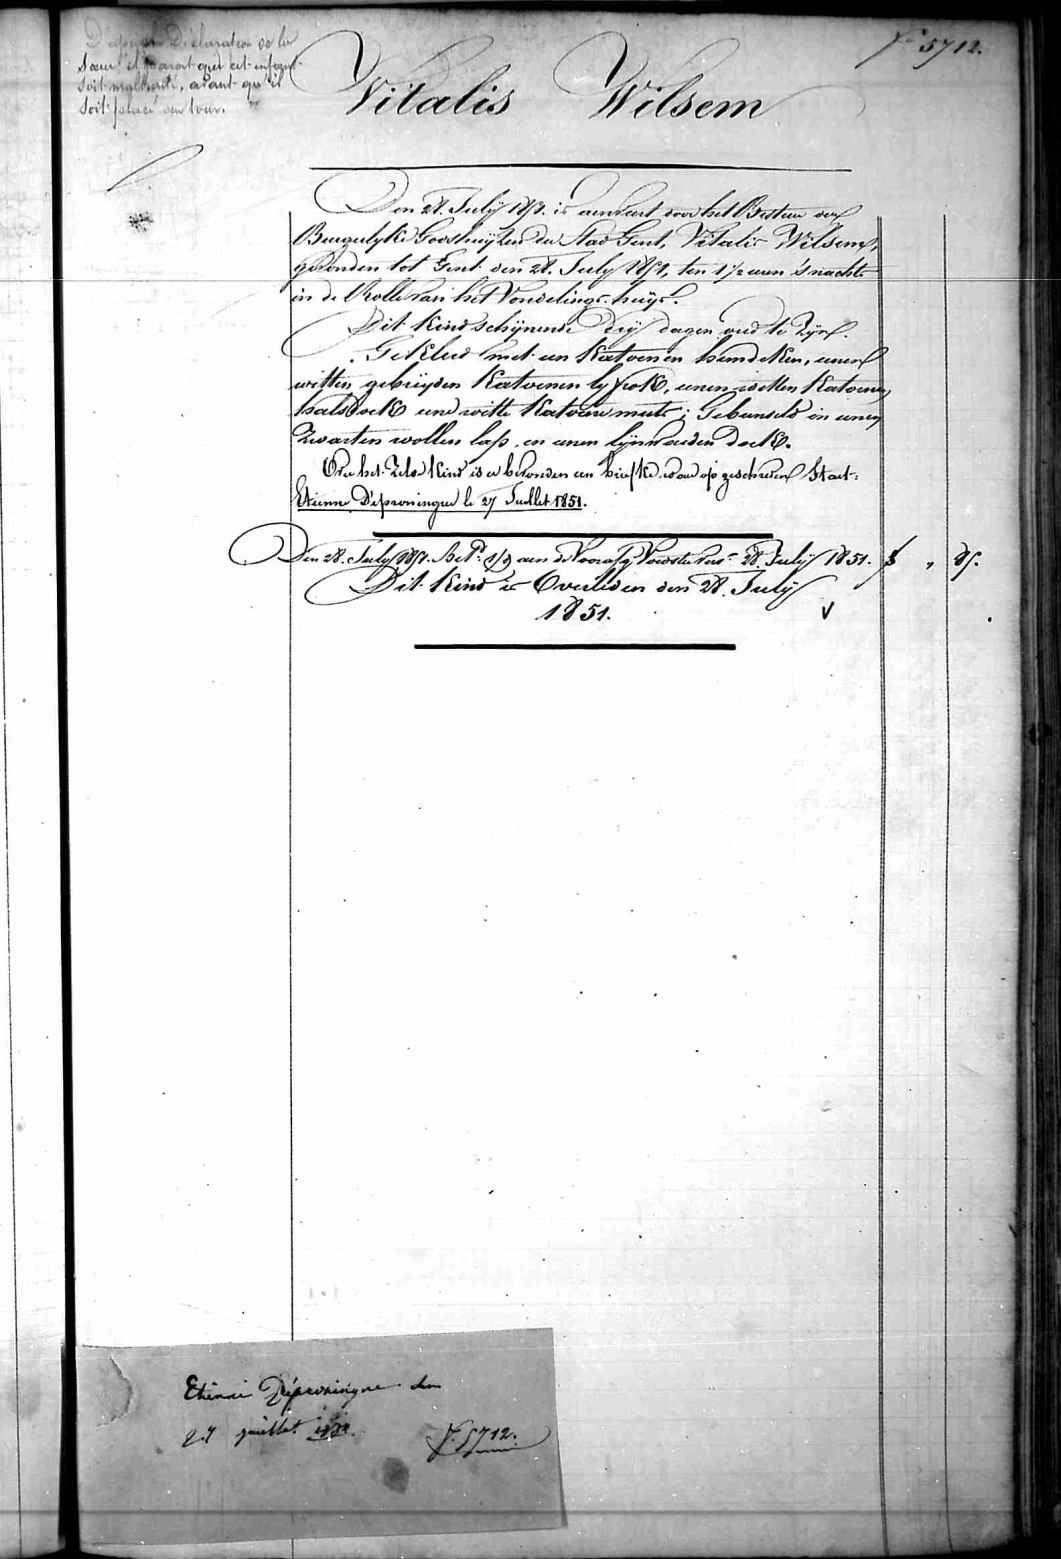 D'après Déclaration de la
Sœur il parait que cet enfant
soit maltraité, avant qu'il
soit placé au tour.
Nº 5712.
Vitalis Wilsem
Den 28. July 1851. is aenveert door het Bestuer der
Burgerlyke Godshuyzen der Stad Gent, Vitalis Wilsem,
gevonden tot Gent den 28. July 1851, ten 1 1/2 uren 's nachts
in de Rolle van het Vondelings-huys.
Dit Kind schijnende drij dagen oud te zijn.
Gekleed met een Katoenen hemdeken, eenen
witten gebreyden Katoenen lyfrok, eenen witten Katoenen
halsdoek eene witte Katoene muts; Gebunseld in eenen
Zwarten wollen lap, en eenen lijnwaeden doek.
Over het Zelve Kind is er bevonden een briefke waer op geschreven Staet:
Etienne D'eproningue le 27 Juillet 1851.
Den 28. July 1851. Bet. aen de Voorsz. Voedster tot 28. July 1851. f , 85.
Dit Kind is Overleden den 28. July
1851. V
Etienni Déproningue den
27 juillet 1851.
Nº 5712.